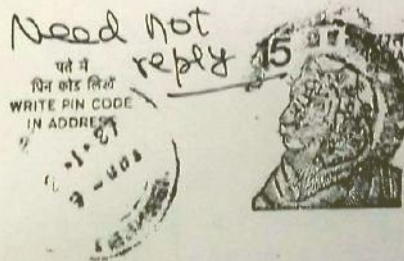 Need not
reply
15
पते में
पिन कोड लिखें
WRITE PIN CODE
IN ADDRESS